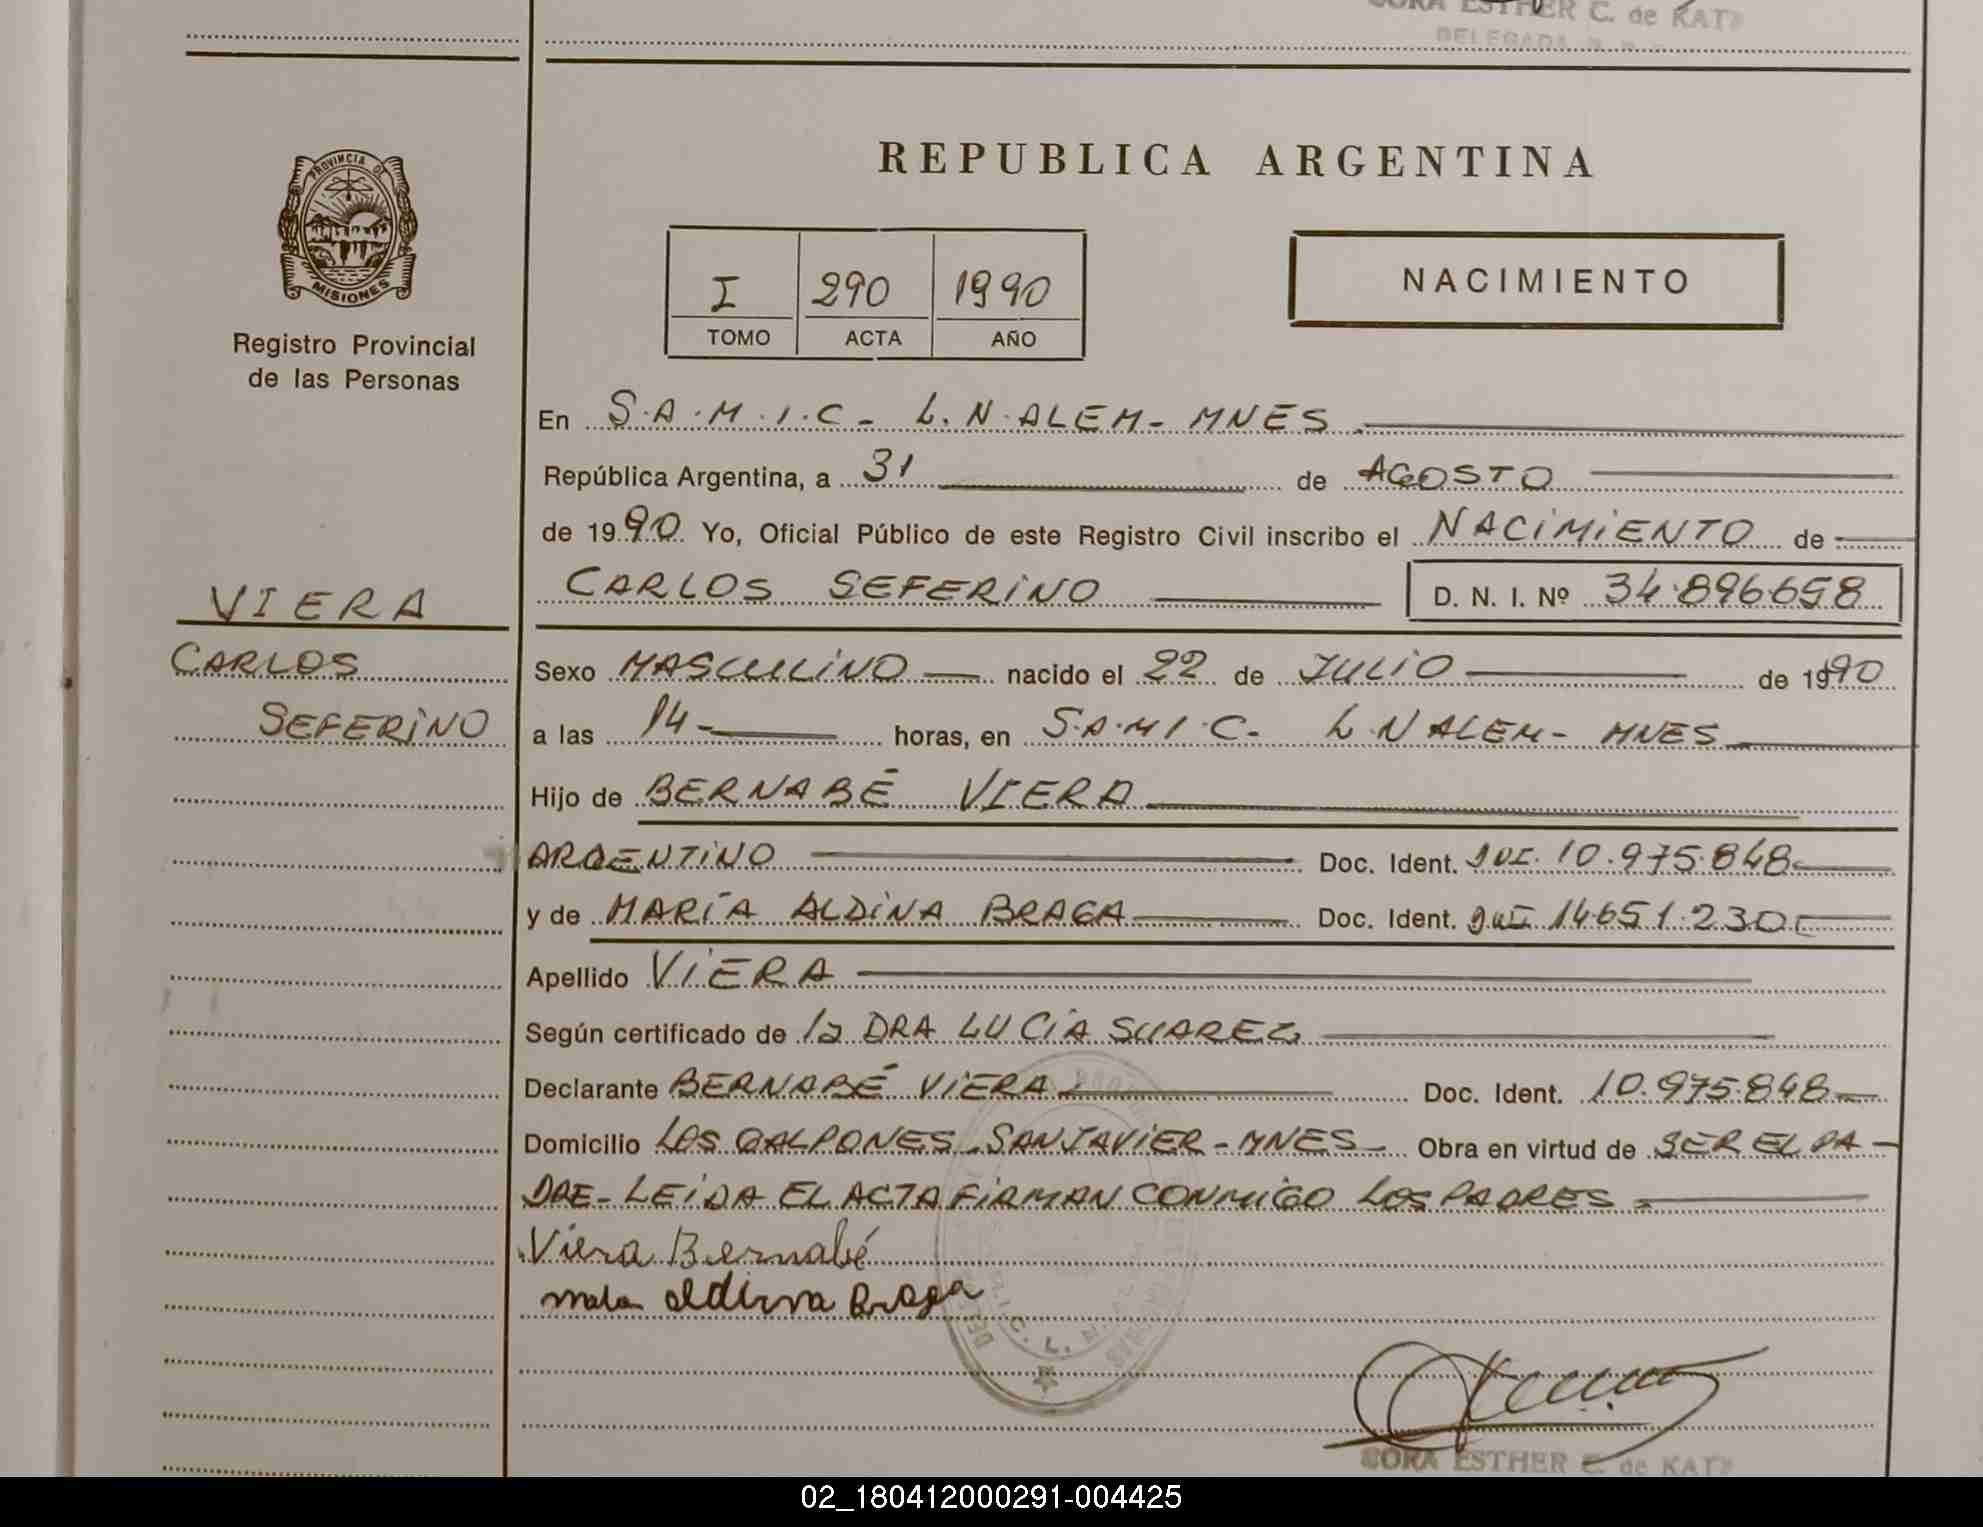 CORA ESTHER C. de KATZ
DELEGADA
PROVINCIA DE
MISIONES
Registro Provincial
de las Personas
REPUBLICA ARGENTINA
I 290 1990
TOMO ACTA AÑO
NACIMIENTO
En S.A.M.I.C- L.N.ALEM- MNES.
República Argentina, a 31 de AGOSTO
de 1990 Yo, Oficial Público de este Registro Civil inscribo el NACIMIENTO de
CARLOS SEFERINO D. N. I. Nº 34.896658
VIERA
CARLOS
SEFERINO
Sexo MASCULINO nacido el 22 de JULIO de 1990
a las 14- horas, en S.A.M.I.C- L.N ALEM- MNES
Hijo de BERNABÉ VIERA
ARGENTINO Doc. Ident. DNI. 10.975.848
y de MARÍA ALDINA BRAGA Doc. Ident. DNI 14.651.230
Apellido VIERA
Según certificado de la DRA LUCÍA SUAREZ
Declarante BERNABÉ VIERA Doc. Ident. 10.975.848
Domicilio LOS GALPONES-SAN JAVIER-MNES- Obra en virtud de SER EL PA-
DRE- LEIDA EL ACTA FIRMAN CONMIGO LOS PADRES
Viera Bernabé
maria aldina Braga
CORA ESTHER C. de KATZ
02_180412000291-004425